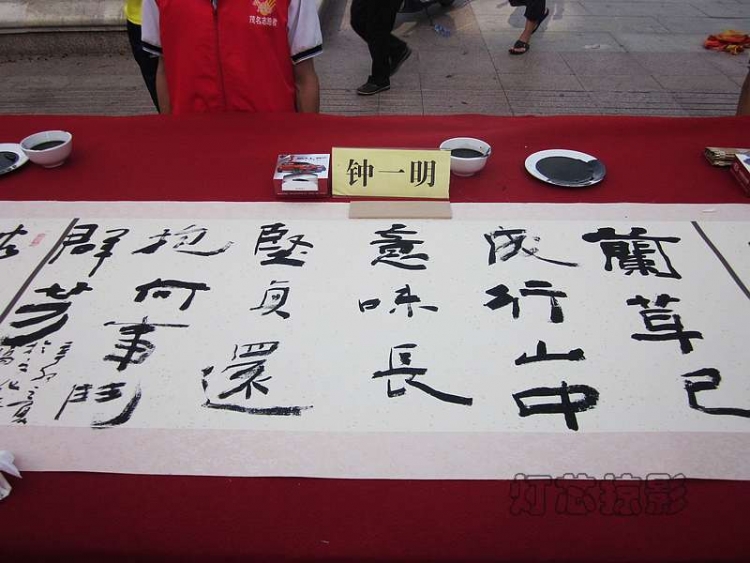 茂名志愿者
钟一明
蘭草已
成行山中
意味長
堅貞還
抱何事鬥
群芳
灯芯掠影